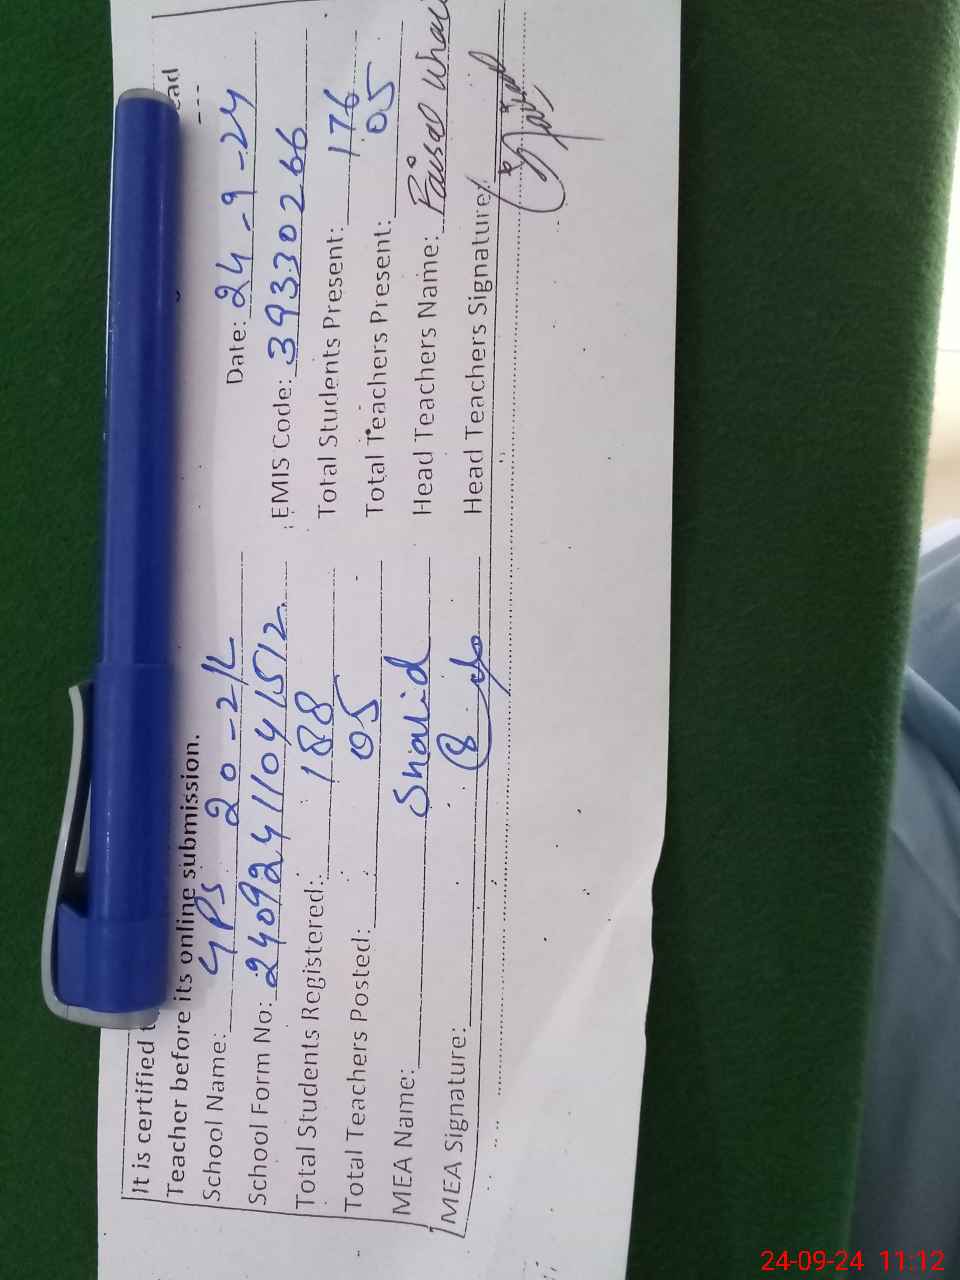 It is certified
ead
Teacher before its online submission.
School Name: GPS 20-2/L Date: 24-9-24
School Form No: 24092411041512 EMIS Code: 39330266
Total Students Registered: 188 Total Students Present: 176
Total Teachers Posted: 05 Total Teachers Present: 05
MEA Name: Shahid Head Teachers Name: Faisal
MEA Signature: Head Teachers Signature:
24-09-24 11:12